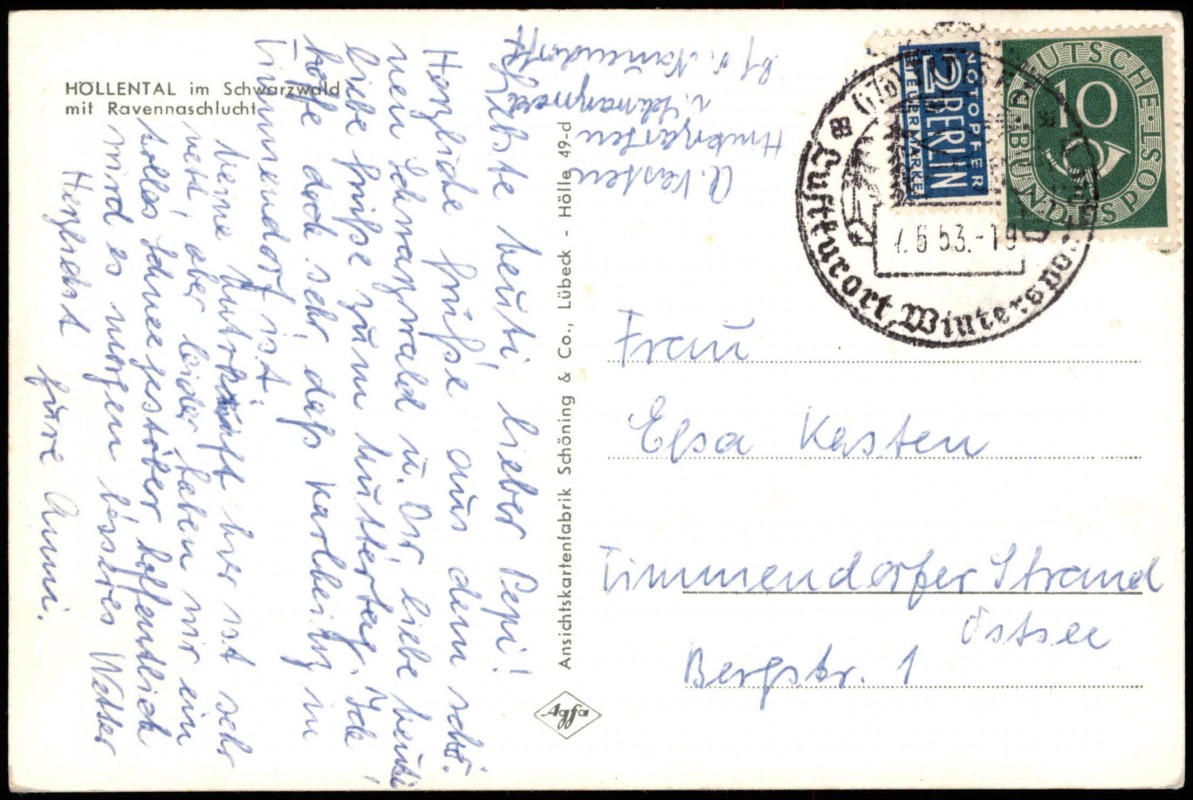 HÖLLENTAL im Schwarzwald
mit Ravennaschlucht
A. Kasten
Hinterzarten
Liebste Mutti, lieber Pepi!
Herzliche Grüße aus dem schö-
nen Schwarzwald u. Dir liebe Mutti
liebe Grüße zum Muttertag. Ich
hoffe doch sehr, daß Karlheinz in
Timmendorf ist.
Meine Unterkunft hier ist sehr
nett, aber leider haben wir ein
tolles Schneegestöber hoffentlich
wird es morgen besseres Wetter
Herzlichst
Eure Anni.
Ansichtskartenfabrik Schöning & Co., Lübeck - Hölle 49-d
Agfa
NOTOPFER
2 BERLIN
STEUERMARKE
DEUTSCHE BUNDESPOST
10
(17b)
7.5.53.-19
Luftkurort, Wintersport
Frau
Elsa Kasten
Timmendorfer Strand
Ostsee
Bergstr. 1